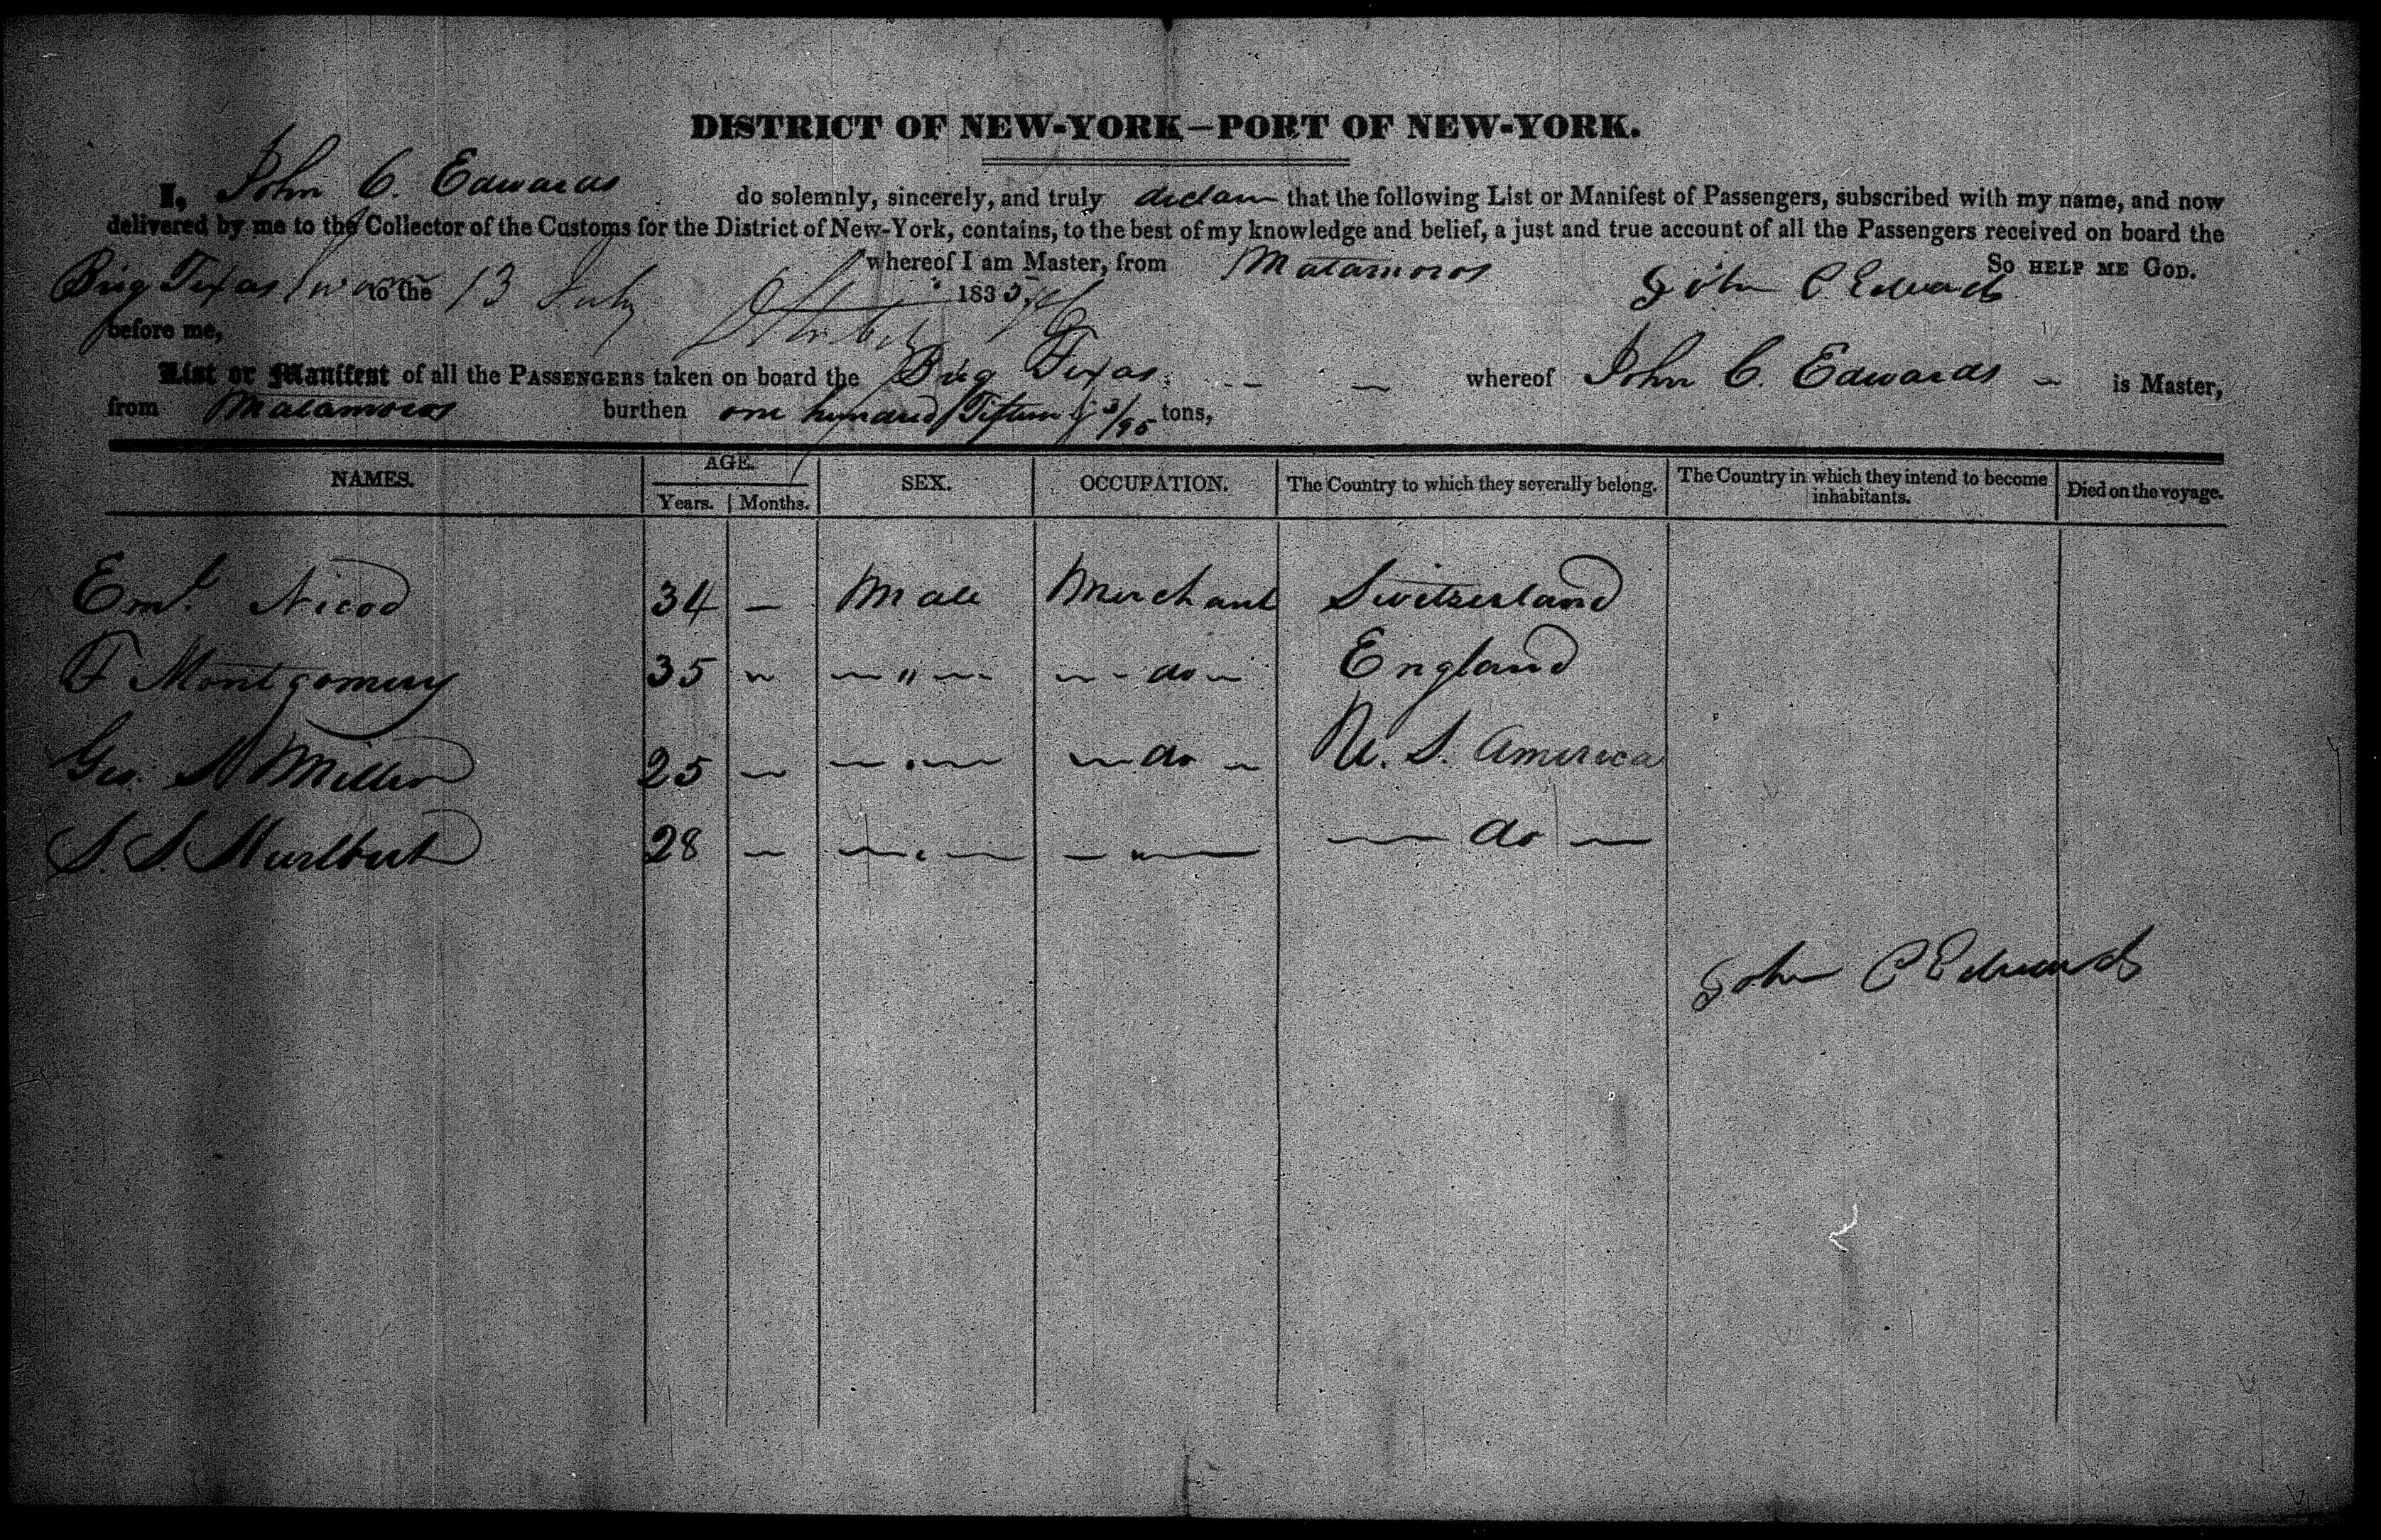 DISTRICT OF NEW-YORK—PORT OF NEW-YORK.
I, John C. Edwards do solemnly, sincerely, and truly declare that the following List or Manifest of Passengers, subscribed with my name, and now
delivered by me to the Collector of the Customs for the District of New-York, contains, to the best of my knowledge and belief, a just and true account of all the Passengers received on board the
Brig Texas whereof I am Master, from Matamoros So HELP ME GOD.
Sworn to the 13 July 183 John C Edwards
before me,
List or Manifest of all the PASSENGERS taken on board the Brig Texas. whereof John C. Edwards is Master,
from Matamoros burthen one hundred Fifteen & 3/95 tons,
NAMES. AGE. SEX. OCCUPATION. The Country to which they severally belong. The Country in which they intend to become inhabitants. Died on the voyage.
Years. Months.
Eml. Nicod 34 — Male Merchant Switzerland
F Montgomery 35 — — " — — do — England
Geo. S Miller 25 — — " — — do — U. S. America
S. S. Hurlbut 28 — — " — — " — — do —
John C Edwards